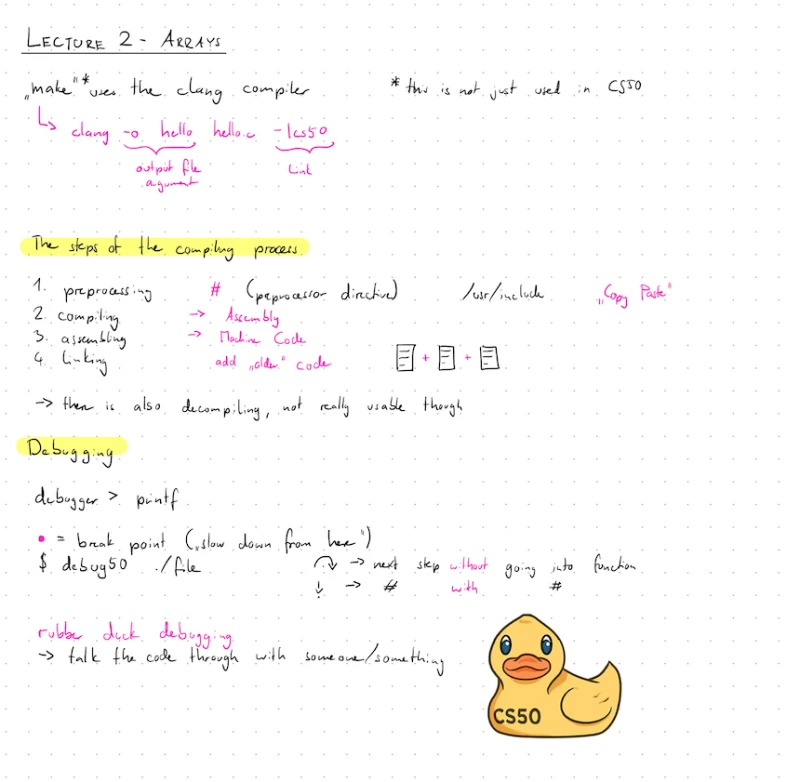 LECTURE 2 - ARRAYS
„make"* uses the clang compiler
* this is not just used in CS50
↳ clang -o hello hello.c -lcs50
output file agument
Link
The steps of the compiling process
1. preprocessing # (preprocessor directive) /usr/include „Copy Paste"
2. compiling -> Assembly
3. assembling -> Machine Code
4. linking add „older" code + +
-> there is also decompiling, not really usable though
Debugging
debugger > printf
• = break point („slow down from here")
$ debug50 ./file
-> next step without going into function
↓ -> # with #
rubber duck debugging
-> talk the code through with someone/something
CS50